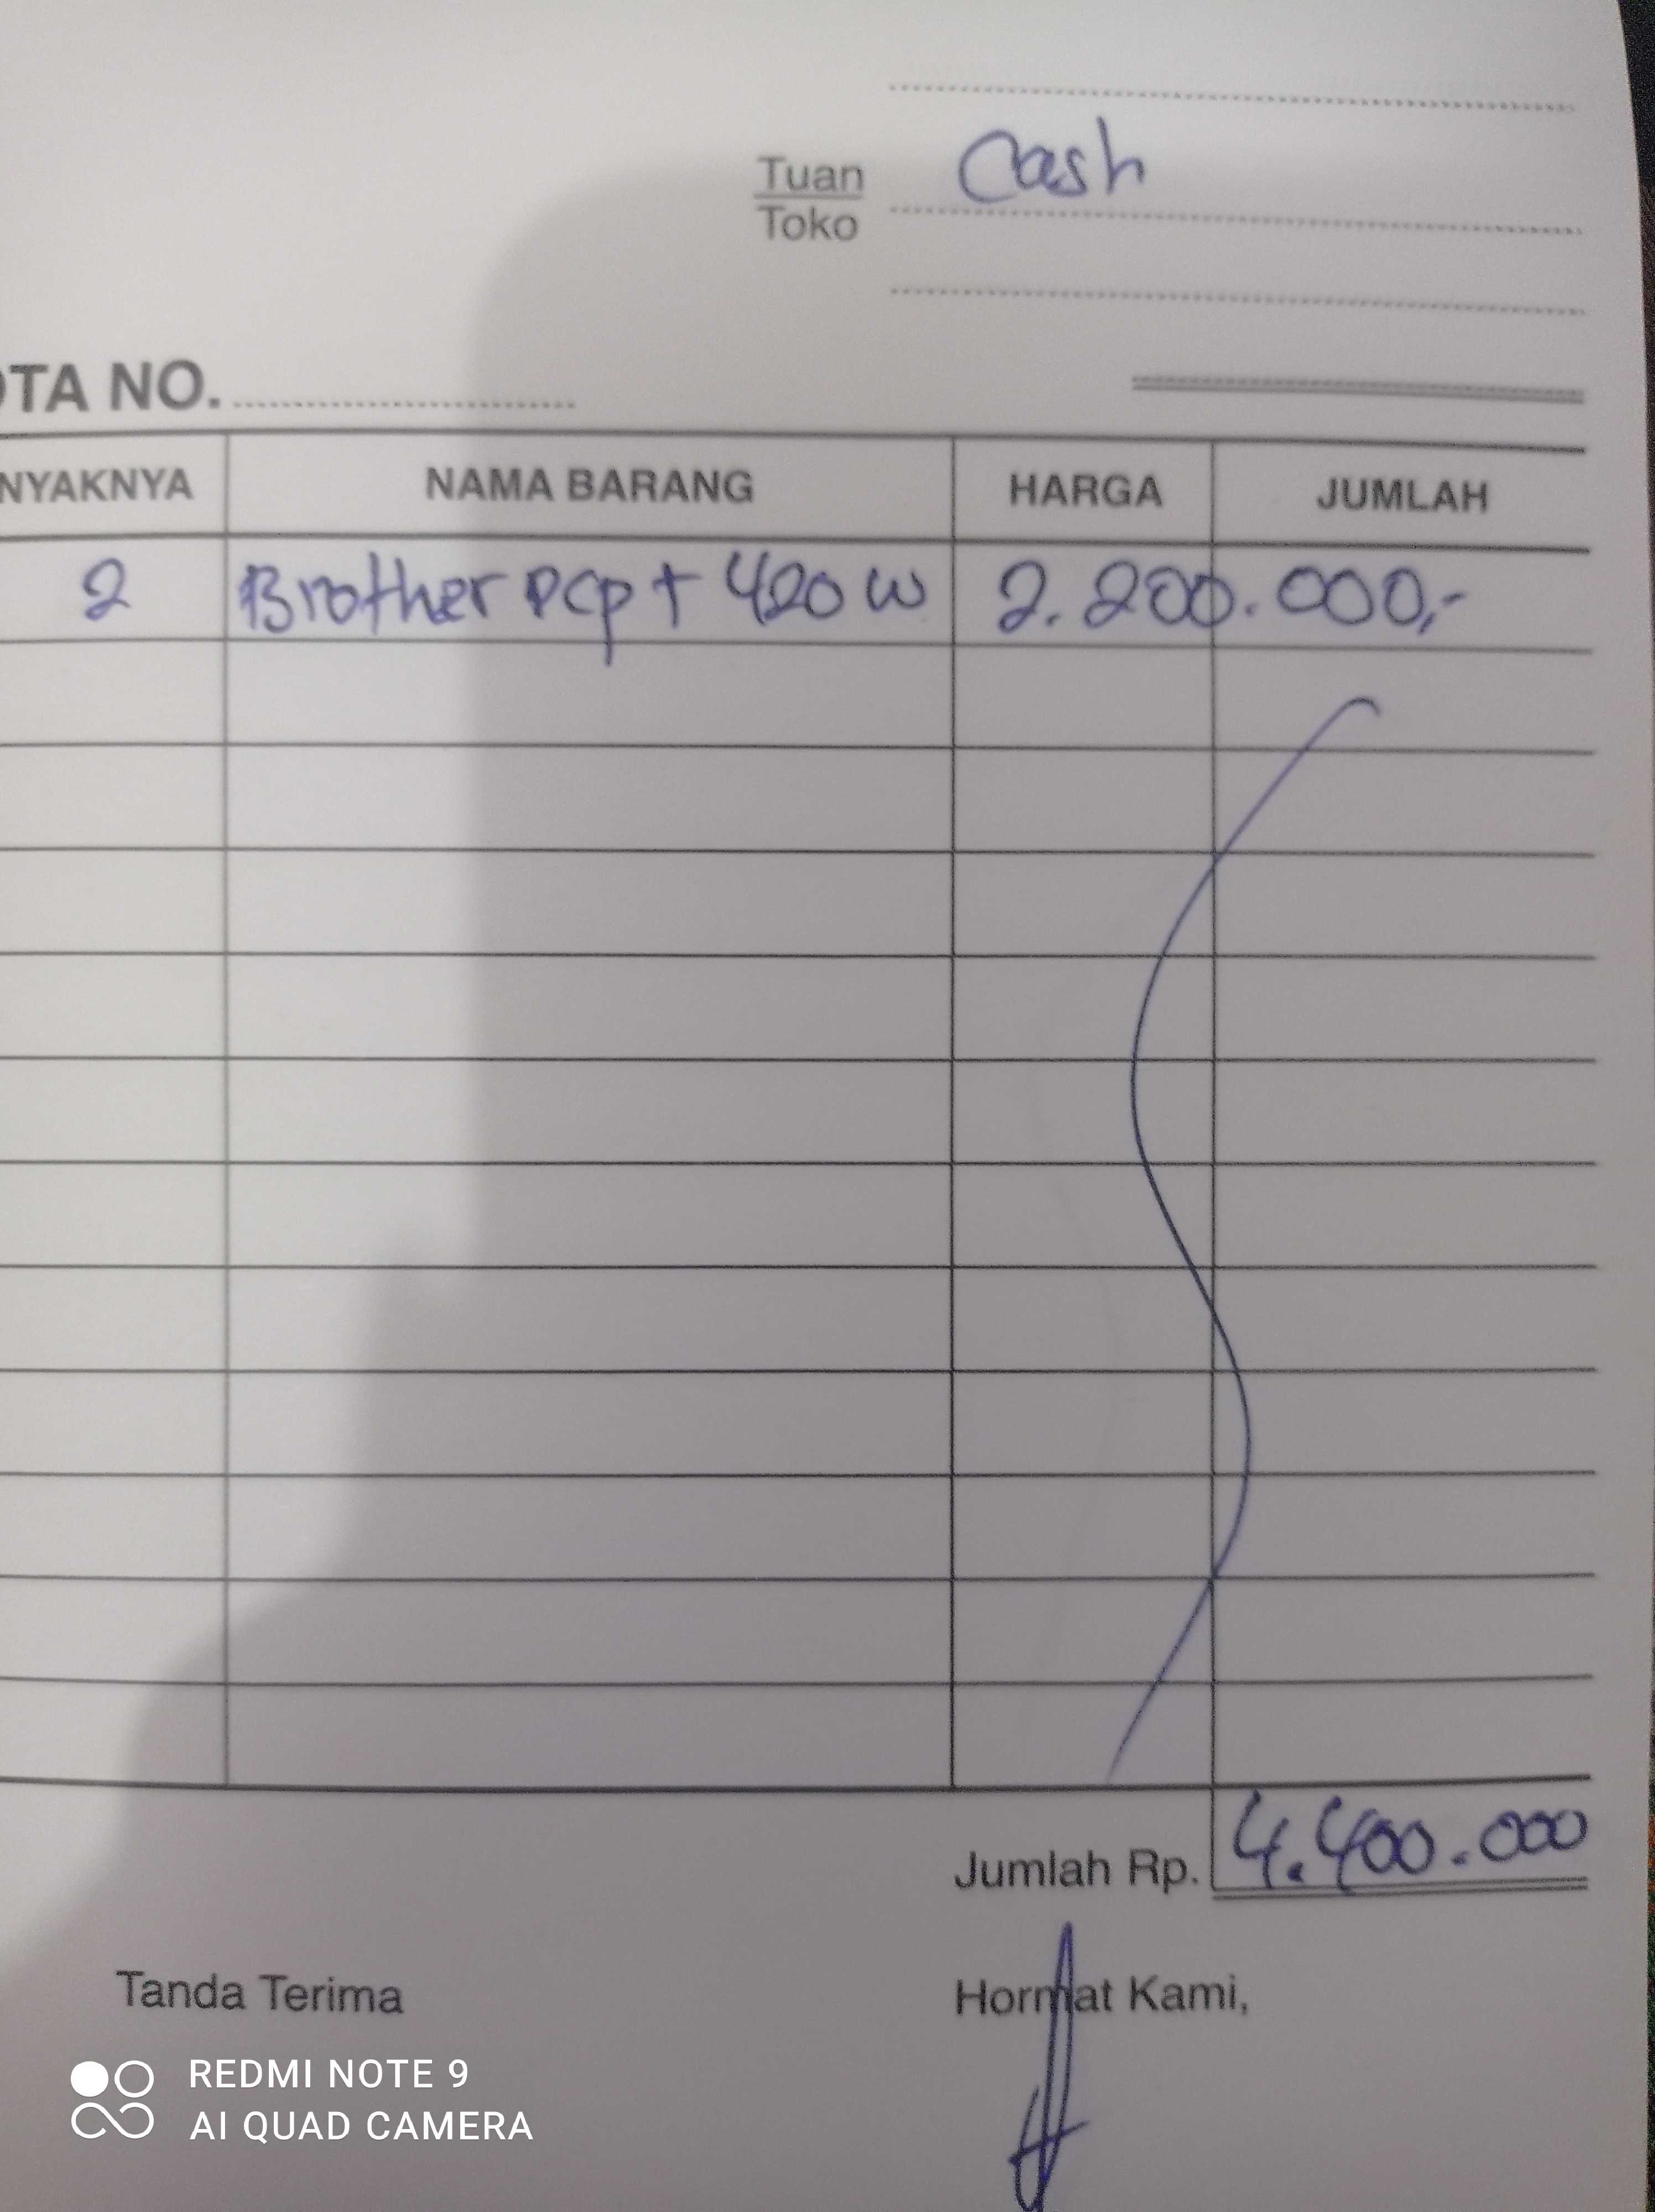 Cash
Tuan
Toko
OTA NO.
NYAKNYA NAMA BARANG HARGA JUMLAH
2 Brother DCP T 420 W 2.200.000,-
Jumlah Rp. 4.400.000
Tanda Terima Hormat Kami,
REDMI NOTE 9
AI QUAD CAMERA